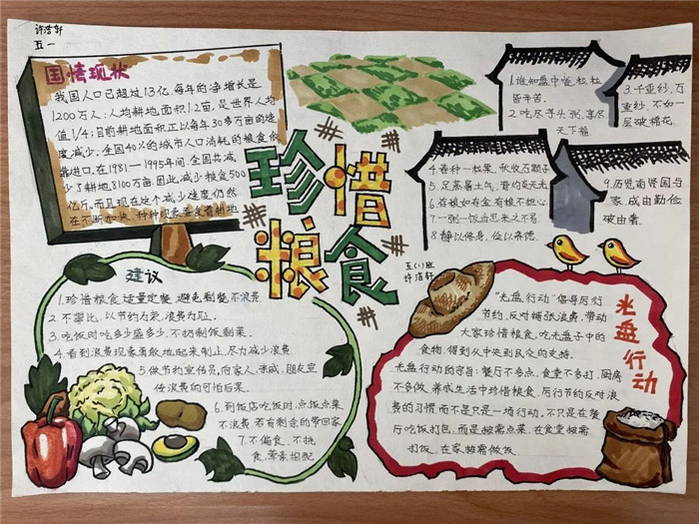 许浩轩
五一
国情现状
我国人口已超过13亿,每年的净增长是
1200万人;人均耕地面积1.2亩,是世界人均
值1/4;目前耕地面积正以每年30多万亩的速
度减少;全国40%的城市人口消耗的粮食依
靠进口,在1981—1995年间,全国共减
少了耕地8100万亩,因此,减少粮食500
亿斤,而且现在这个减少速度仍然
在不断加快,种种现象在
珍惜
粮食
五(1)班
许浩轩
1.谁知盘中餐,粒粒
皆辛苦。
2.吃尽
天下福。
3.千重纱,万
重纱,不如一
层破棉花。
4.春种一粒粟,秋收万颗子
5.足蒸暑土气,背灼炎天光
6.存粮如存金,有粮不担心
7.一粥一饭当思来之不易
8.静以修身,俭以养德
9.历览前贤国与
家,成由勤俭
破由奢。
建议
1.珍惜粮食,适量定餐,避免剩餐,不浪费
2.不攀比,以节约为荣,浪费为耻。
3.吃饭时吃多少盛多少,不扔剩饭剩菜。
4.看到浪费现象勇敢地起来制止,尽力减少浪费
5.做节约宣传员,向家人、亲戚、朋友宣
传浪费的可怕后果。
6.到饭店吃饭时,点饭点菜
不浪费,若有剩余的带回家
7.不偏食,不挑
食,荤素相配
光盘行动
“光盘行动”倡导厉行
节约,反对铺张浪费,带动
大家珍惜粮食,吃光盘子中的
食物,得到从中央到民众的支持。
光盘行动的宗旨:餐厅不多点,食堂不多打,厨房
不多做,养成生活中珍惜粮食,厉行节约反对浪
费的习惯,而不是只是一场行动,不只是在餐
厅吃饭打包,而是按需点菜,在食堂按需
打饭,在家按需做饭。